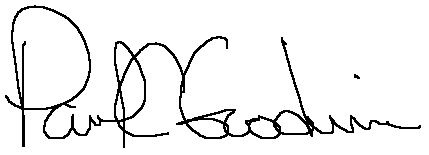 Paul Goodwin